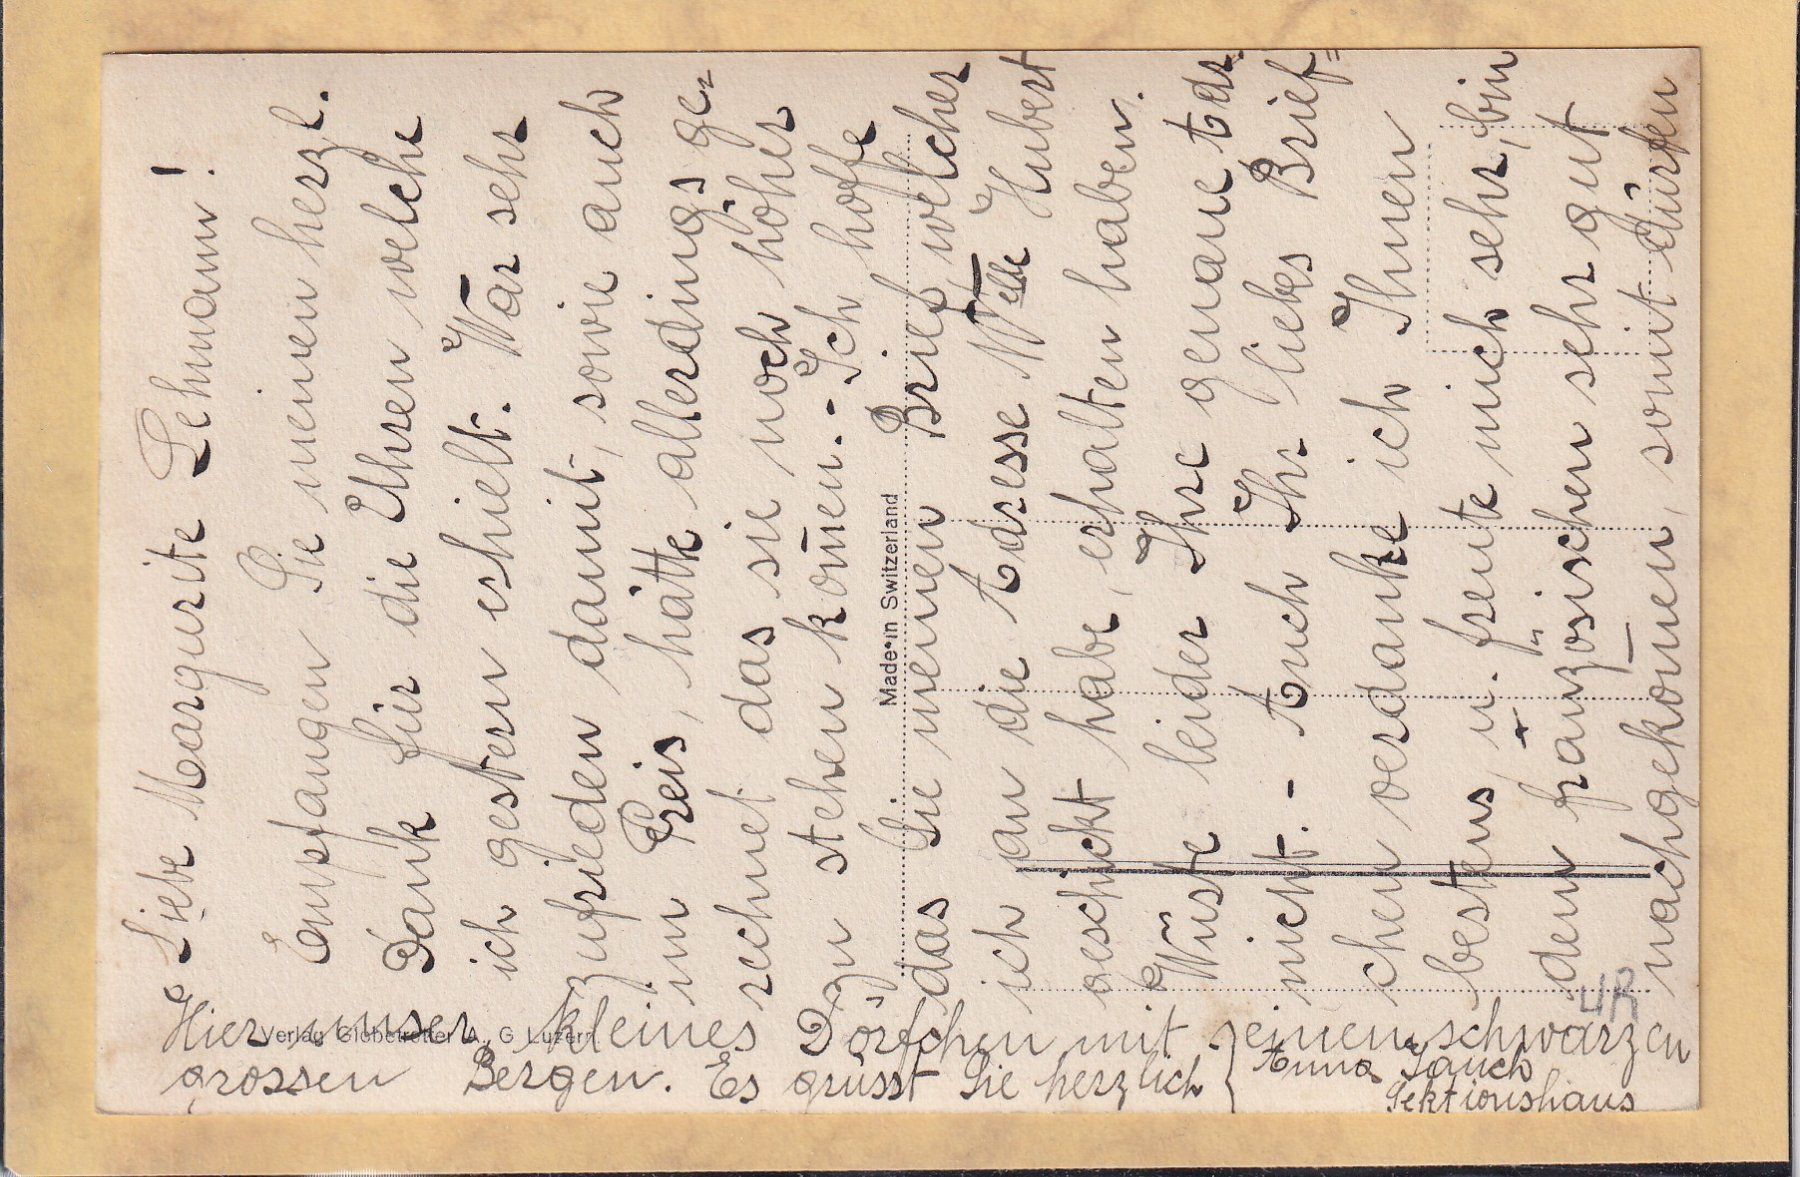 Liebe Margurite Lehmann!
Empfangen Sie meinen herzl.
Dank für die Uhren welche
ich gestern erhielt. War sehr
zufrieden damit, sowie auch
im Preis, hätte allerdings ge=
rechnet das sie noch höher
zu stehen kom̄en. - Ich hoffe
das Sie meinen Brief welcher
ich an die Adresse Welle Hubert
geschickt habe, erhalten haben.
Wuste leider Ihre genaue Adr.
nicht. - Auch Ihr liebes Brief=
chen verdanke ich Ihnen
bestens u. freute mich sehr, bin
dem französischen sehr gut
nachgekom̄en, somit dürfen
Made in Switzerland
Verlag Globetrotter A. G. Luzern
Hier unser kleines Dörfchen mit seinen schwarzen
grossen Bergen. Es grüsst Sie herzlich
Anna Jauch
Sektionshaus
UR